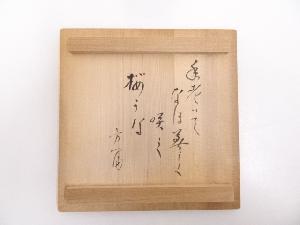 年老いて
なほ美しく
咲く
桜かな